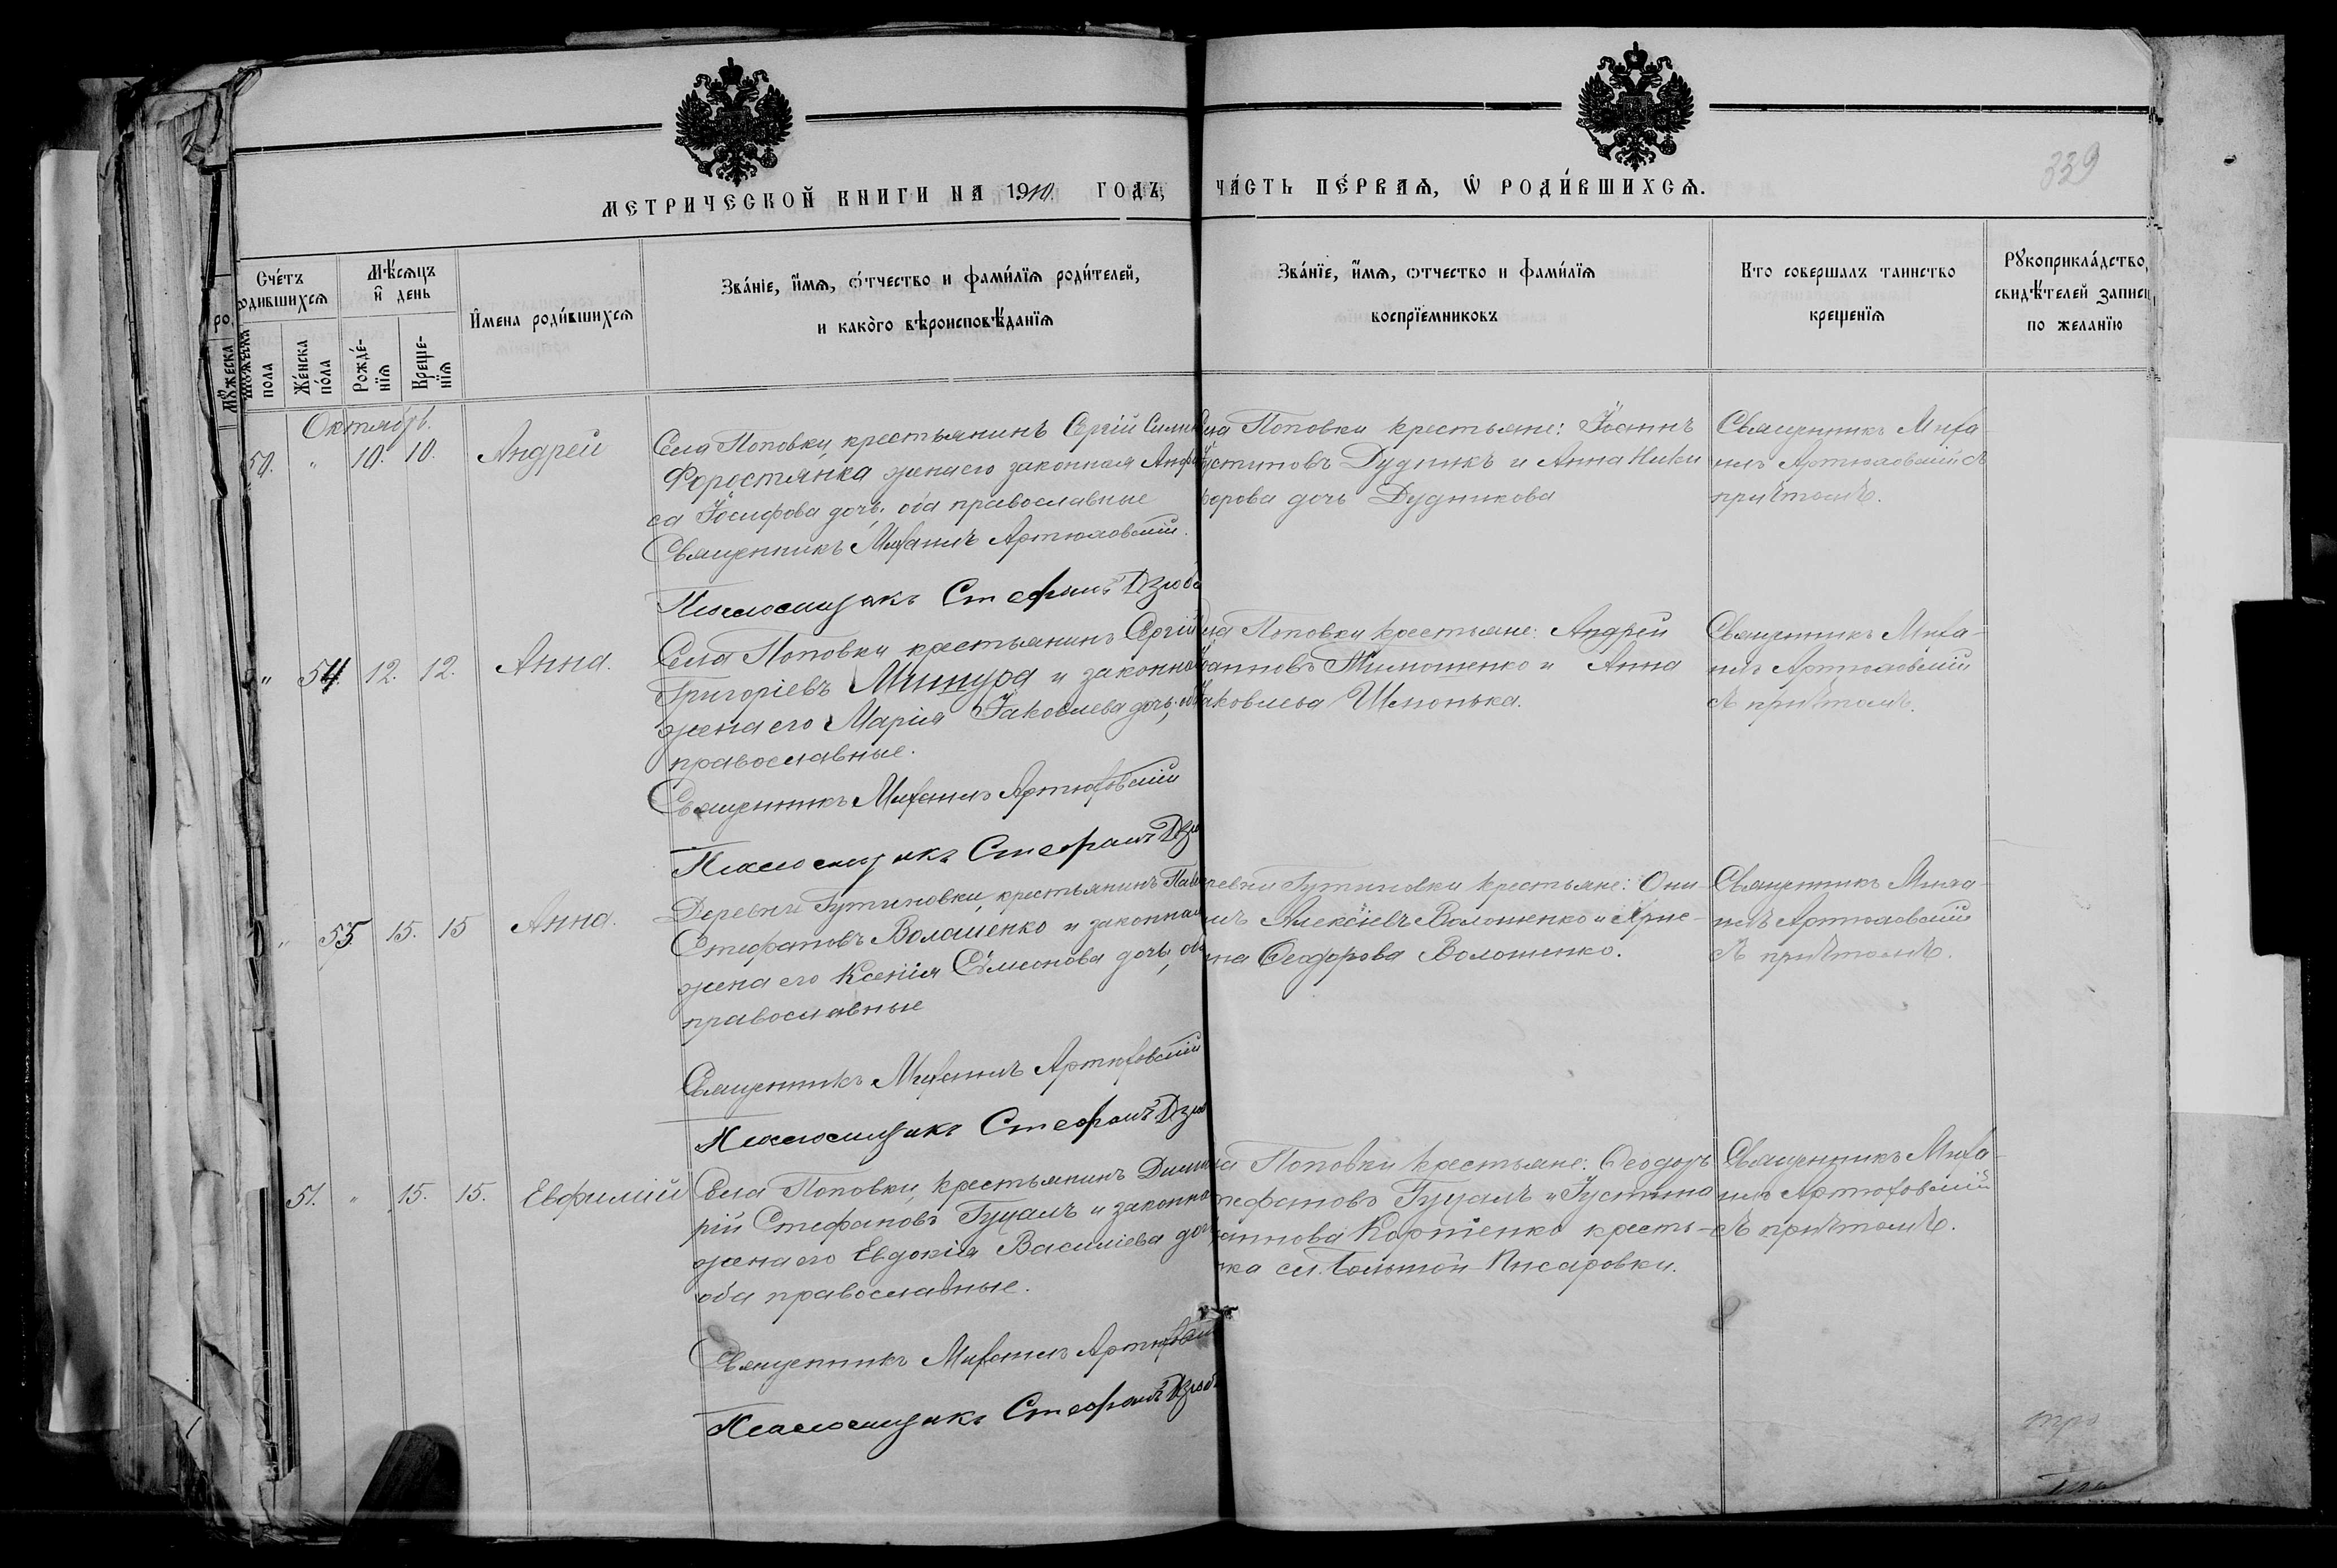 МЕТРИЧЕСКОЙ КНИГИ НА 1910. ГОДЪ,
ЧА́СТЬ ПЕ́РВАѦ, Ѡ҆ РОДИ́ВШИХСѦ.
339
Сче́тъ родившихсѧ
Мѣ́сѧцъ и҆ день
И҆мена роди́вшихсѧ
Зва́нїе, и҆́мѧ, ѻ҆́тчество и фами́лїѧ роди́телей,
и како́го вѣроисповѣ́данїѧ
Зва́нїе, и҆́мѧ, ѻтчество и фами́лїѧ
воспрїемниковъ
Кто совершалъ таинство
крещенїѧ
Рꙋкоприкла́дство,
свидѣ́телей записи
по желанїю
пола
Же́нска по́ла
Рожде́-
нїѧ
Креще-
нїѧ
Октябрь.
50. " 10. 10. Андрей
Села Поповки, крестьянинъ Сергій
Форостянка жена его законная
са Іосифова дочь, оба православные
Священникъ Михаилъ Артюховскій.
Псаломщикъ Стефанъ Дзюба
Поповки крестьяне: Іоаннъ
Іустиновъ Дудникъ и Анна Ники
форова дочь Дудникова
Священникъ Миха-
илъ Артюховскій съ
причтомъ.
" 54. 12. 12. Анна.
Села Поповки крестьянинъ Сергій
Григоріевъ и законная
жена его Марія Іаковлева дочь,
православные.
Священникъ Михаилъ Артюховскій
Псаломщикъ Стефанъ
Поповки крестьяне: Андрей
Іоанновъ Тимошенко и Анна
Іаковлева
Священникъ Миха-
илъ Артюховскій
съ причтомъ.
" 55 15. 15 Анна.
Деревни Гутницовки, крестьянинъ
Стефановъ Волошенко и законная
жена его Ксенія Симеонова дочь,
православные
Священникъ Михаилъ Артюховскій
Псаломщикъ Стефанъ
крестьяне: Они-
Алексіевъ Волошенко и
Ѳеодорова Волошенко.
Священникъ Миха-
илъ Артюховскій
съ причтомъ.
51. " 15. 15. Евфимій
Села Поповки, крестьянинъ Димит
рій Стефановъ Гуцалъ и законная
жена его Евдокія Василіева дочь
оба православные.
Священникъ Михаилъ Артюховскій
Псаломщикъ Стефанъ Дзюба
Поповки крестьяне: Ѳеодоръ
Стефановъ Гуцалъ и Іустина
Іоаннова Корніенко кресть-
янка сл. Большой Писаровки.
Священникъ Миха-
илъ Артюховскій
съ причтомъ.